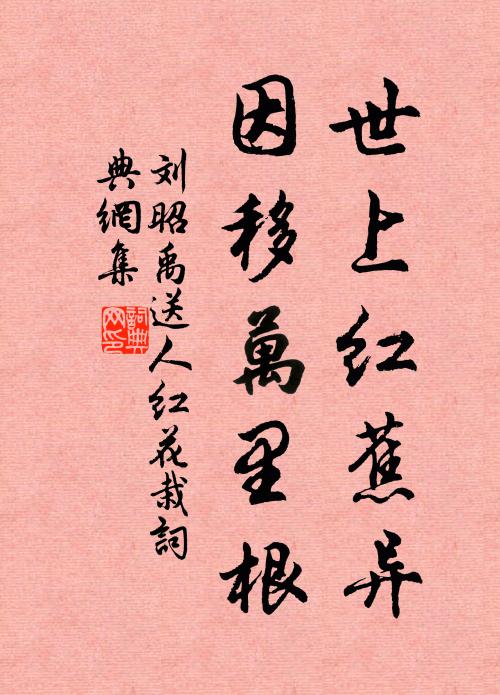 世上红蕉异
因移萬里根
刘昭禹送人红花栽詞
典網集
詞典
网印